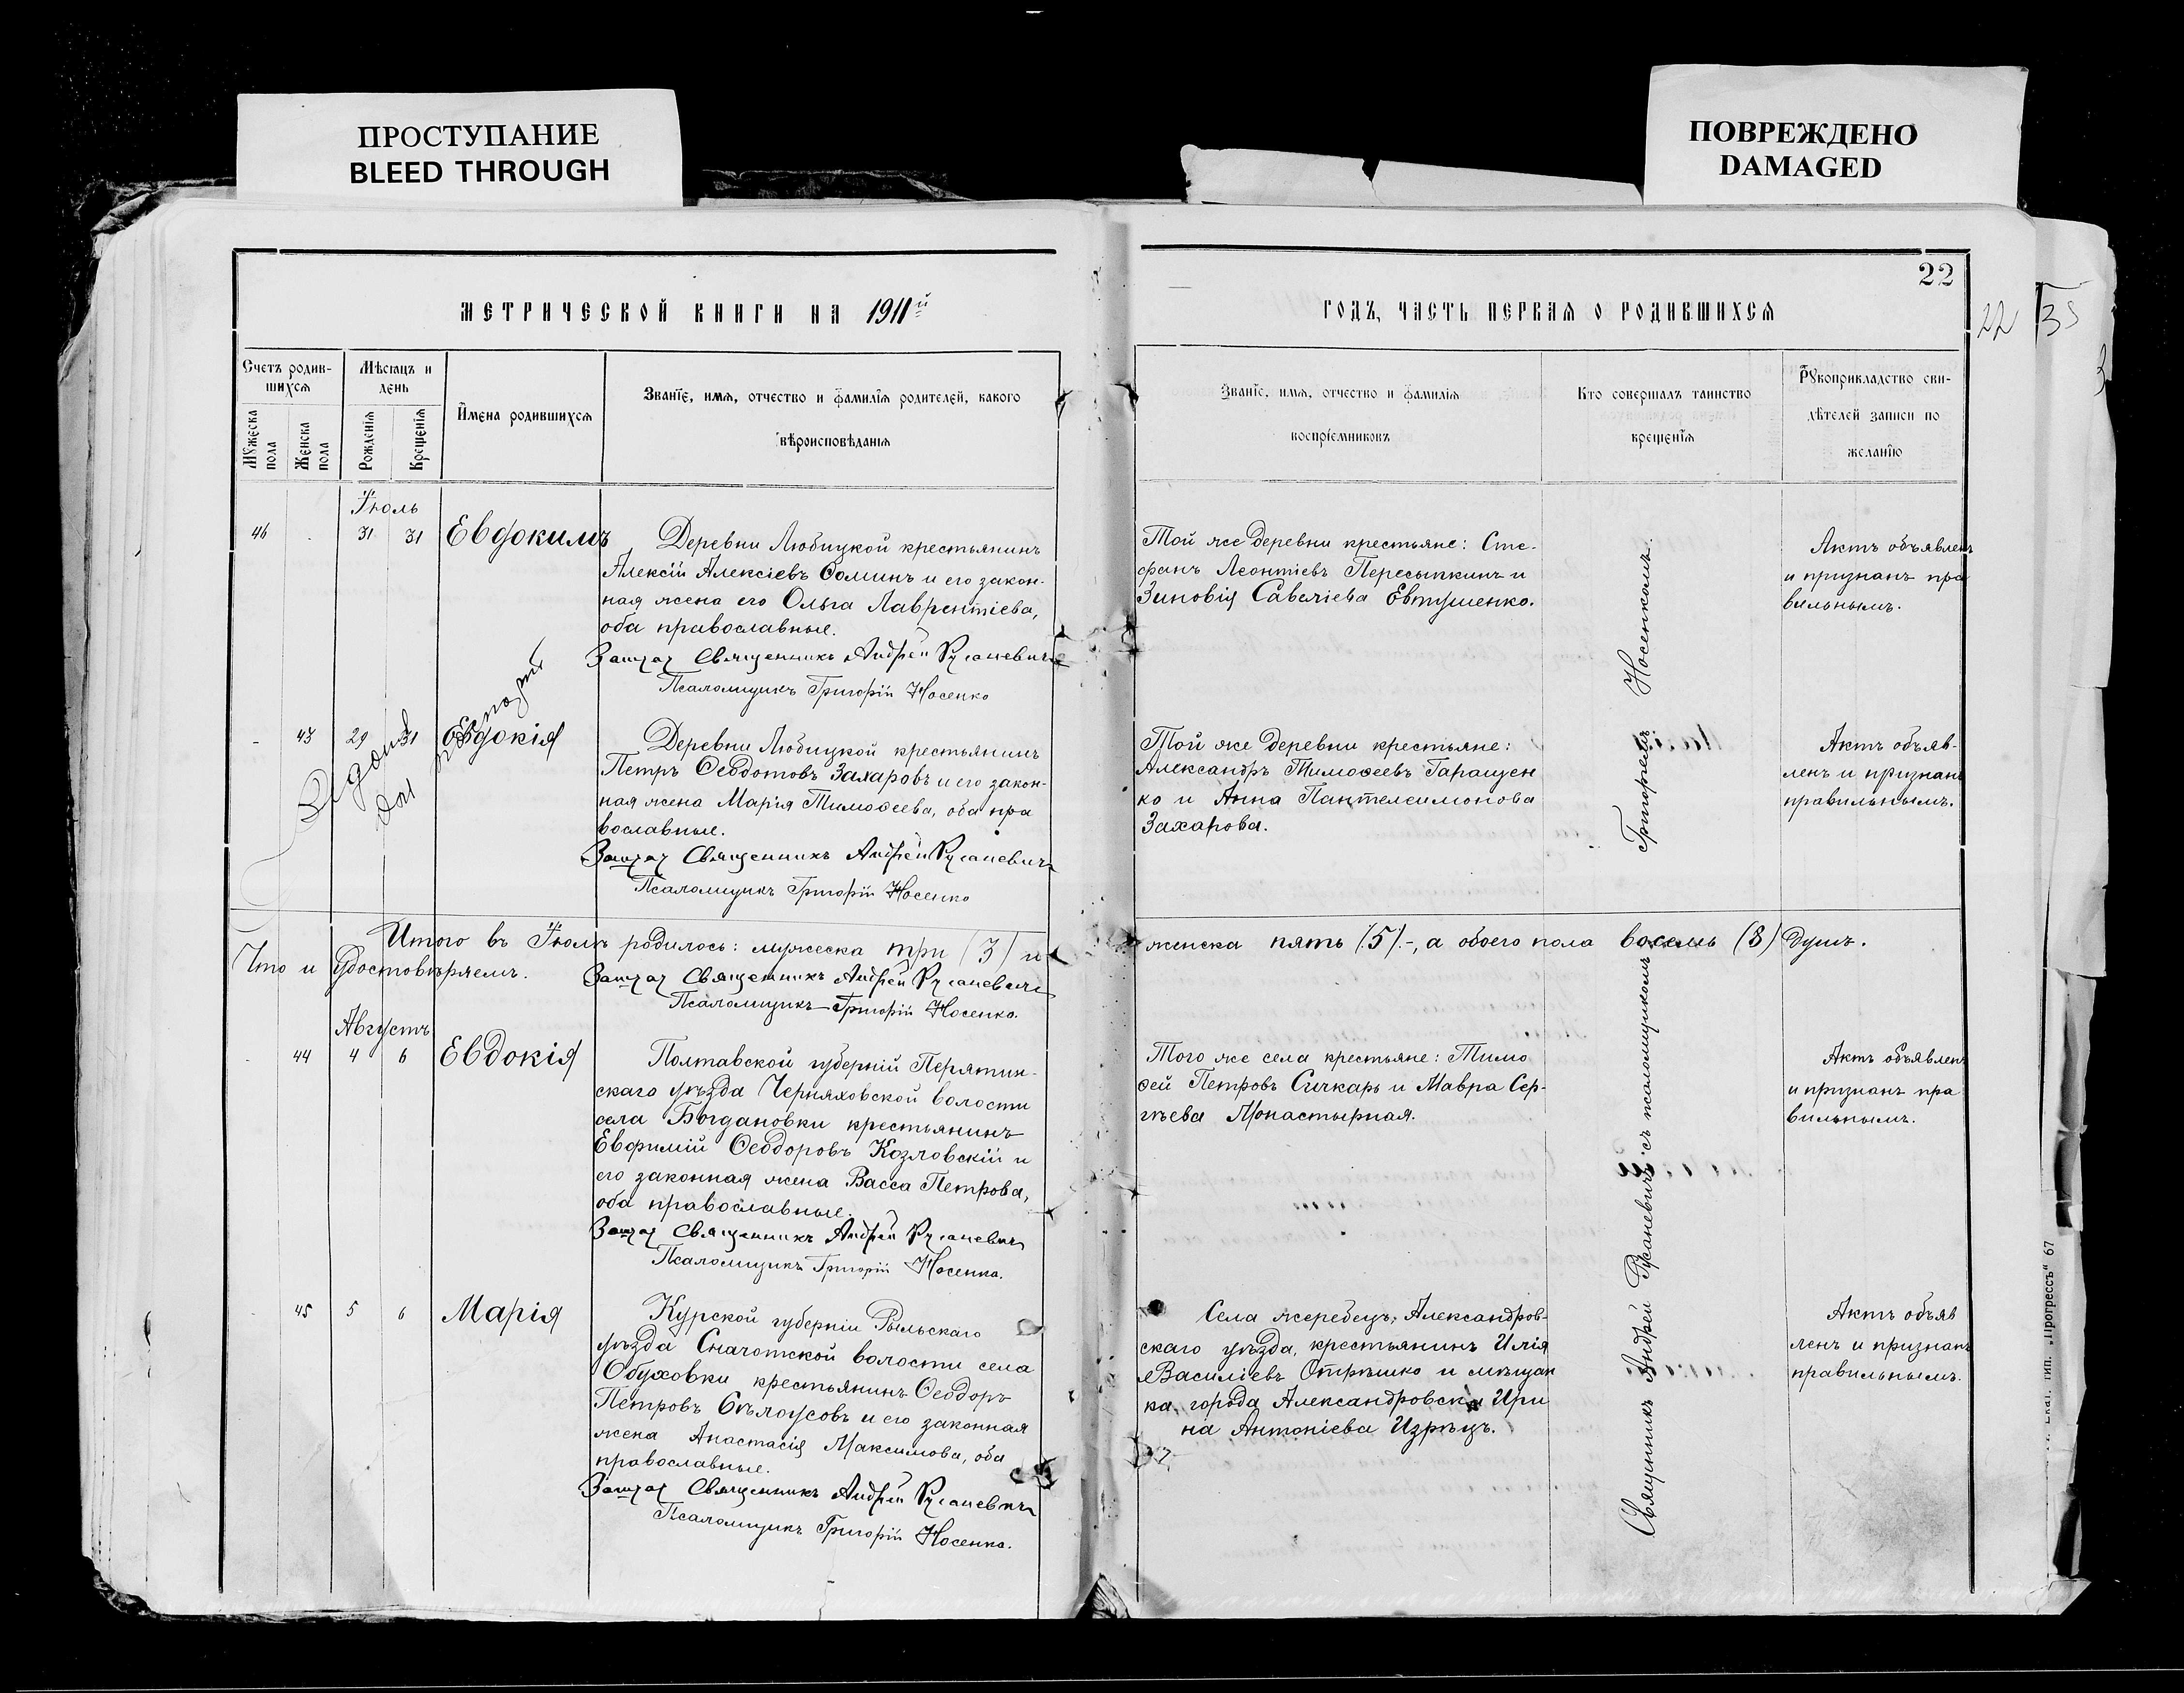 ПРОСТУПАНИЕ
BLEED THROUGH
ПОВРЕЖДЕНО
DAMAGED
МЕТРИЧЕСКОЙ КНИГИ НА 1911й
Счетъ родив-
шихся
Мѣсяцъ и
день
Мужеска
пола
Женска
пола
Рожденія
Крещенія
Имена родившихся
Званіе, имя, отчество и фамилія родителей, какого
вѣроисповѣданія
Іюль
46 31 31 Евдокимъ
Деревни Любицкой крестьянинъ
Алексій Алексіевъ Ѳоминъ и его закон-
ная жена его Ольга Лаврентіева,
оба православные.
Священникъ Андрей Русаневичъ
Псаломщикъ Григорій Носенко
43 29 31 Евдокія
Деревни Любицкой крестьянинъ
Петръ Ѳеодотовъ Захаровъ и его закон-
ная жена Марія Тимоѳеева, оба пра
вославные.
Священникъ Андрей Русаневичъ
Псаломщикъ Григорій Носенко
Итого въ Іюлѣ родилось: мужеска три (3) и
Что и удостовѣряемъ.
Священникъ Андрей Русаневичъ
Псаломщикъ Григорій Носенко.
Августъ
44 4 6 Евдокія
Полтавской губерній Перятин-
скаго уѣзда Черняховской волости
села Богдановки крестьянинъ
Евфимій Ѳеодоровъ Козловскій и
его законная жена Васса Петрова,
оба православные.
Священникъ Андрей Русаневичъ
Псаломщикъ Григорій Носенко.
45 5 6 Марія
Курской губерніи Рыльскаго
уѣзда Снаготской волости села
Обуховки крестьянинъ Ѳеодоръ
Петровъ Бѣлоусовъ и его законная
жена Анастасія Максимова, оба
православные.
Священникъ Андрей Русаневичъ
Псаломщикъ Григорій Носенко.
22
ГОДЪ, ЧАСТЬ ПЕРВАЯ О РОДИВШИХСЯ
22 35
3
Званіе, имя, отчество и фамилія
воспріемниковъ
Кто совершалъ таинство
крещенія
Рукоприкладство сви-
дѣтелей записи по
желанію
Той же деревни крестьяне: Сте-
фанъ Леонтіевъ Пересыпкинъ и
Зиновія Савеліева Евтушенко.
Актъ объявленъ
и признанъ пра
вильнымъ.
Той же деревни крестьяне:
Александръ Тимоѳеевъ Геращен
ко и Анна Пантелеимонова
Захарова.
Актъ объяв-
ленъ и признанъ
правильнымъ.
женска пять (5)-, а обоего пола восемь (8) душъ.
Того же села крестьяне: Тимо
ѳей Петровъ Сичкарь и Мавра Сер-
гѣева Монастырная.
Актъ объявленъ
и признанъ пра
вильнымъ.
Села жеребецъ, Александров-
скаго уѣзда, крестьянинъ Илія
Василіевъ Отрѣшко и мѣщан
ка города Александровска Ири
на Антоніева Изрѣцъ.
Актъ объяв
ленъ и признанъ
правильнымъ.
Священникъ Андрей Русаневичъ съ псаломщикомъ Григоріемъ Носенкомъ.
тип. „Прогрессъ“ 67